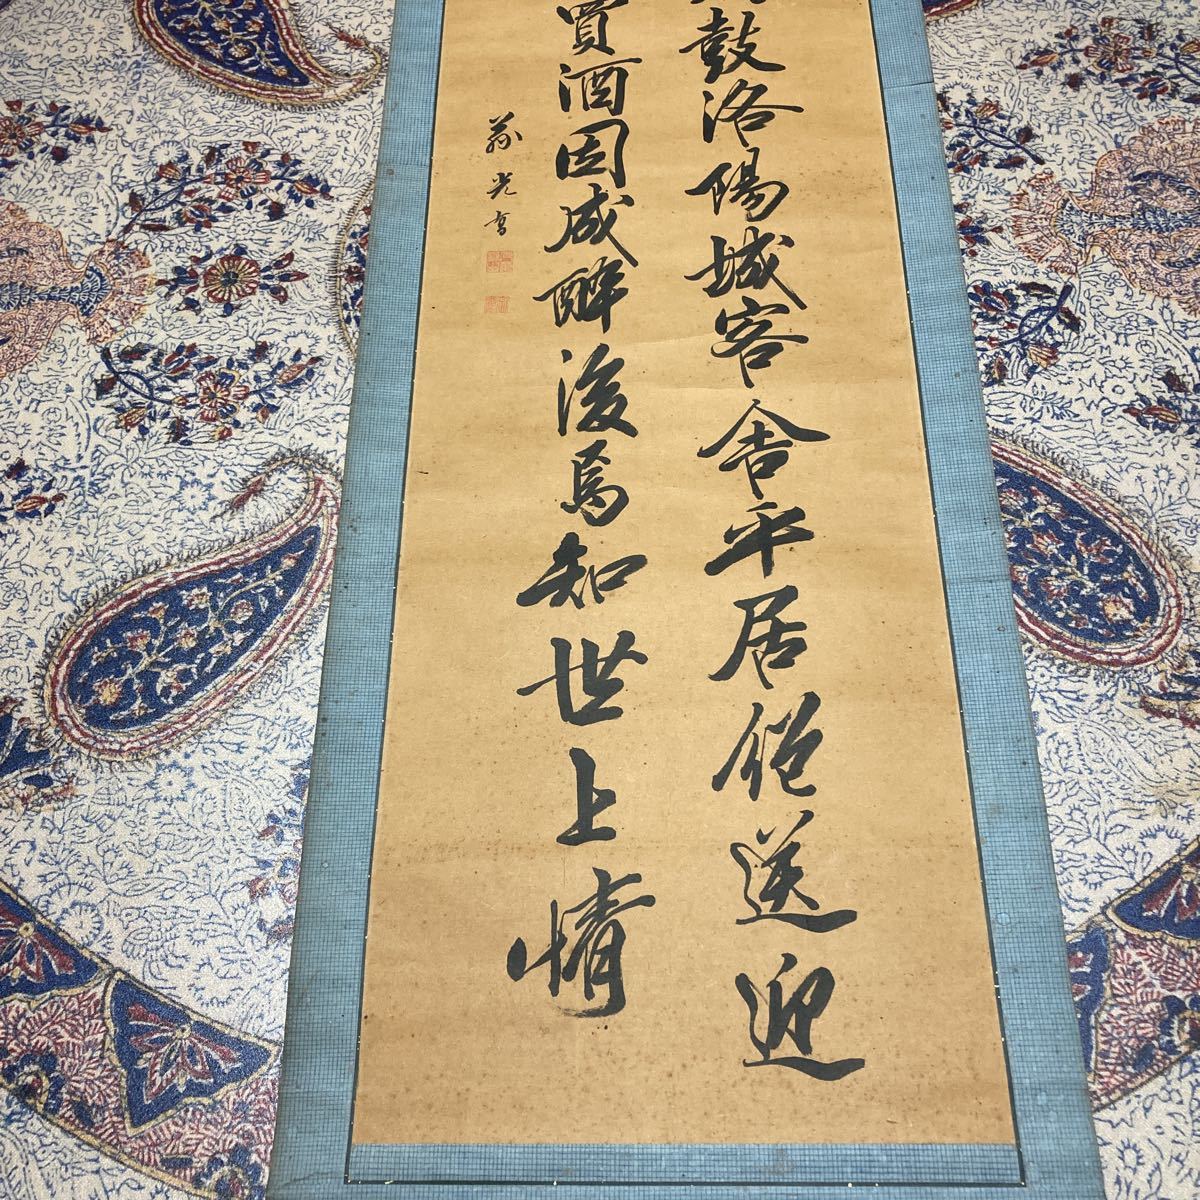 鼓洛陽城客舍平居絶送迎
買酒因成醉後焉知世上情